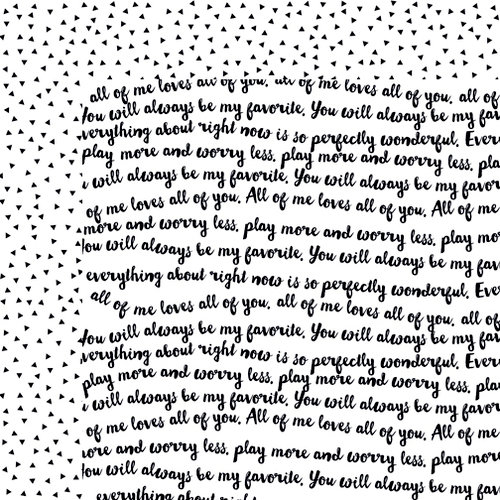 all of me loves all of you. all of me loves all of you. all of
You will always be my favorite. You will always be my fav
everything about right now is so perfectly wonderful. Ever
play more and worry less. play more and worry less. pla
will always be my favorite. You will always be my favor
of me loves all of you. All of me loves all of you. All of me
more and worry less. play more and worry less. play mo
You will always be my favorite. You will always be my fav
everything about right now is so perfectly wonderful. Eve
all of me loves all of you. all of me loves all of you. all of
You will always be my favorite. You will always be my fav
everything about right now is so perfectly wonderful. Ever
play more and worry less. play more and worry less. pla
will always be my favorite. You will always be my favor
of me loves all of you. All of me loves all of you. All of me
more and worry less. play more and worry less. play mo
You will always be my favorite. You will always be my fav
everything about right